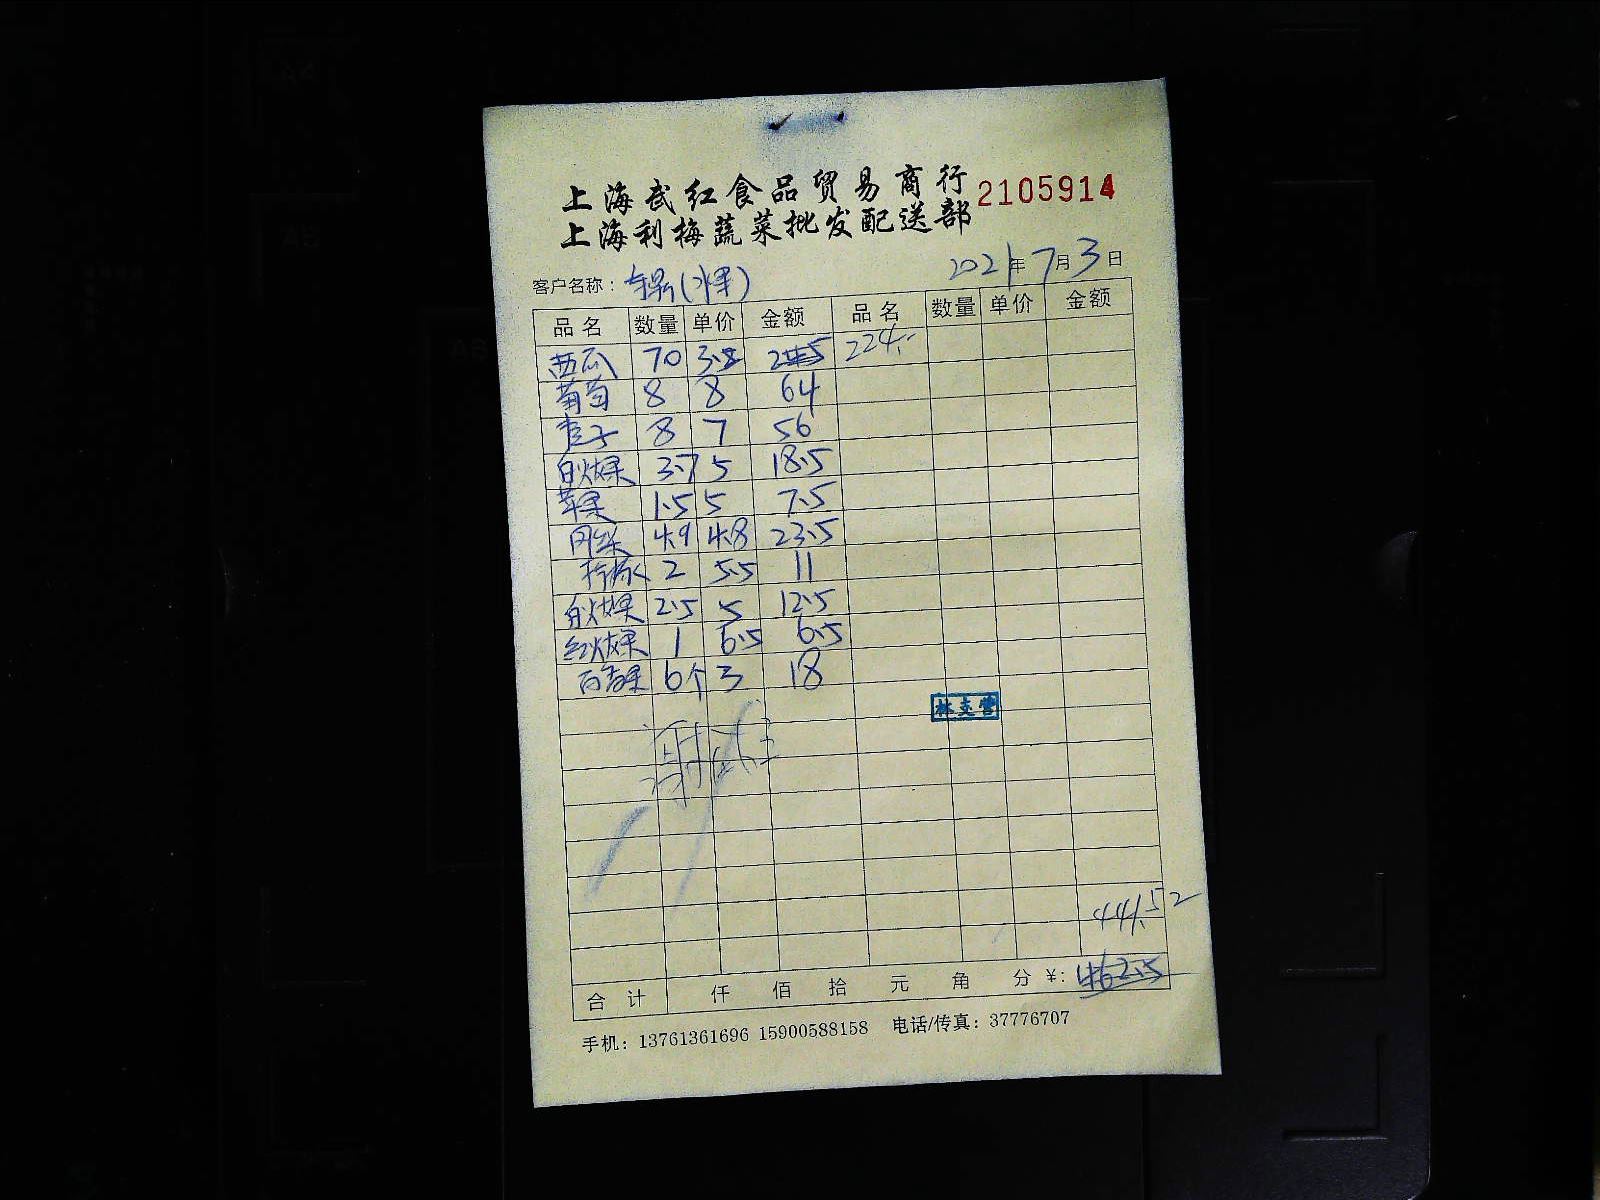 上海武红食品贸易商行
2105914
上海利梅蔬菜批发配送部
客户名称：
2021年7月3日
品名 数量 单价 金额 品名 数量 单价 金额
西瓜 70 224.-
葡萄 8 8 64
李子 8 7 56
白火龙果 3.7 5 18.5
苹果 1.5 5 7.5
4.9 4.8 23.5
柠檬 2 5.5 11
白火龙果 2.5 5 12.5
红火龙果 1 6.5 6.5
百香果 6个 3 18
441.52
合计 仟 佰 拾 元 角 分 ¥: 462.5
手机：13761361696 15900588158 电话/传真：37776707